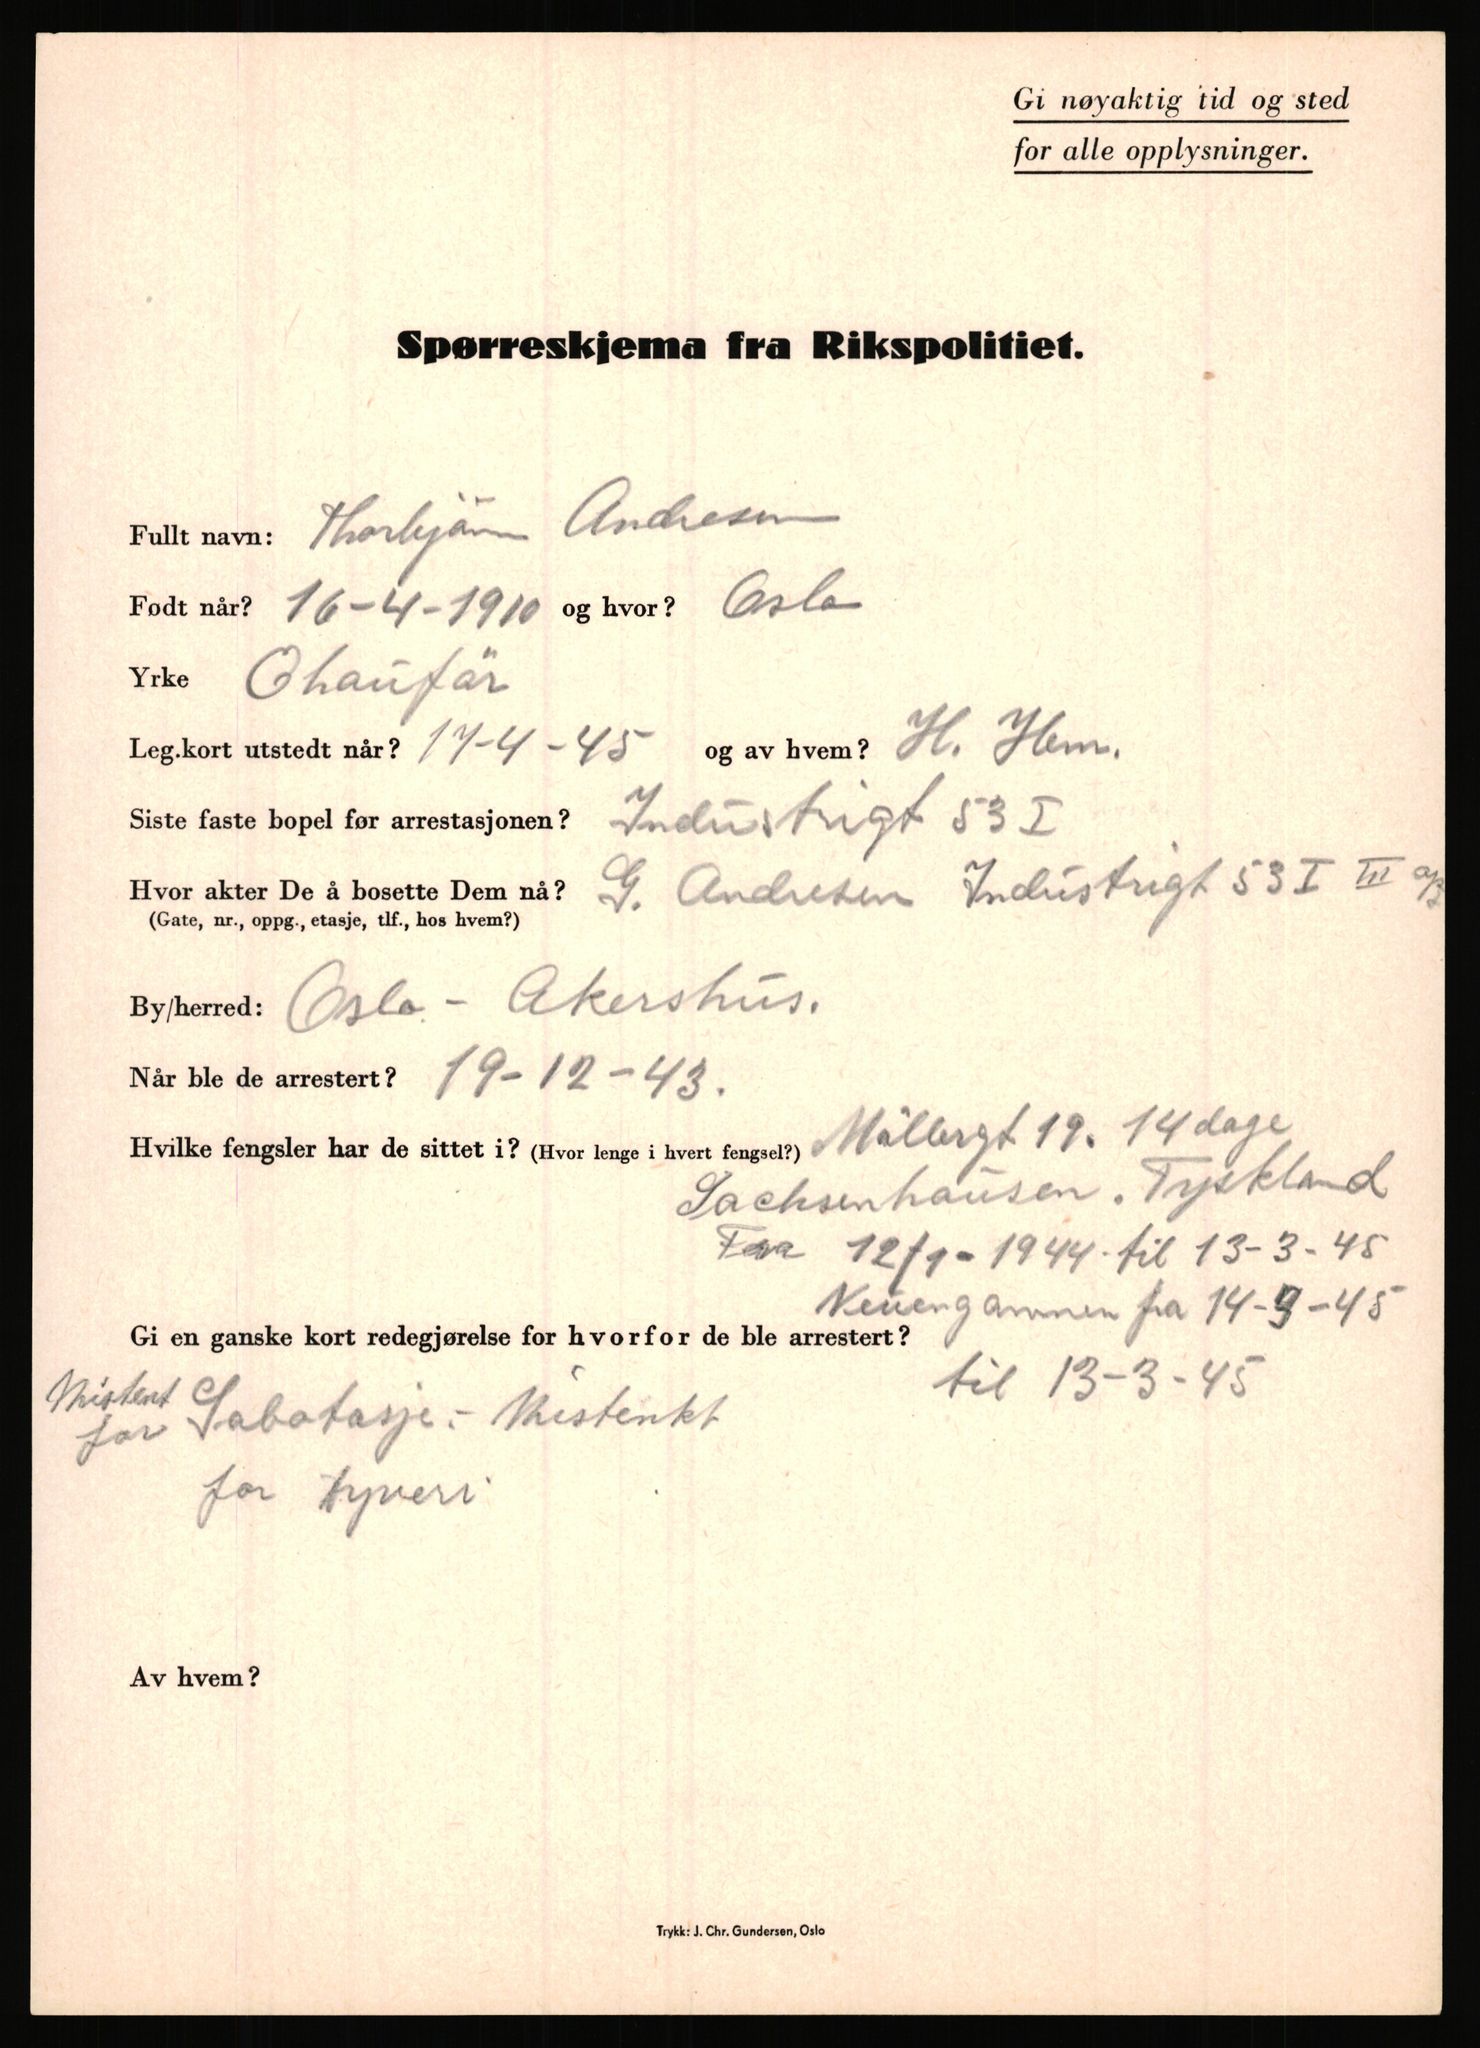 Gi nøyaktig tid og sted
for alle opplysninger.
Spørreskjema fra Rikspolitiet.
Fullt navn: Thorbjörn Andresen
Født når? 16-4-1910 og hvor? Oslo
Yrke Chaufär
Leg.kort utstedt når? 17-4-45 og av hvem? H. Hem.
Siste faste bopel før arrestasjonen? Industrigt 53 I
Hvor akter De å bosette Dem nå? G. Andresen Industrigt 53 I III
(Gate, nr., oppg., etasje, tlf., hos hvem?)
By/herred: Oslo - Akershus.
Når ble de arrestert? 19-12-43.
Hvilke fengsler har de sittet i? (Hvor lenge i hvert fengsel?) Möllergt 19. 14 dage
Sachsenhausen. Tyskland
Fra 12/1-1944 til 13-3-45
Neuengammen fra 14-3-45
Gi en ganske kort redegjørelse for hvorfor de ble arrestert?
til 13-3-45
Mistent
for Sabotasje.- Mistenkt
for tyveri
Av hvem?
Trykk: J. Chr. Gundersen, Oslo